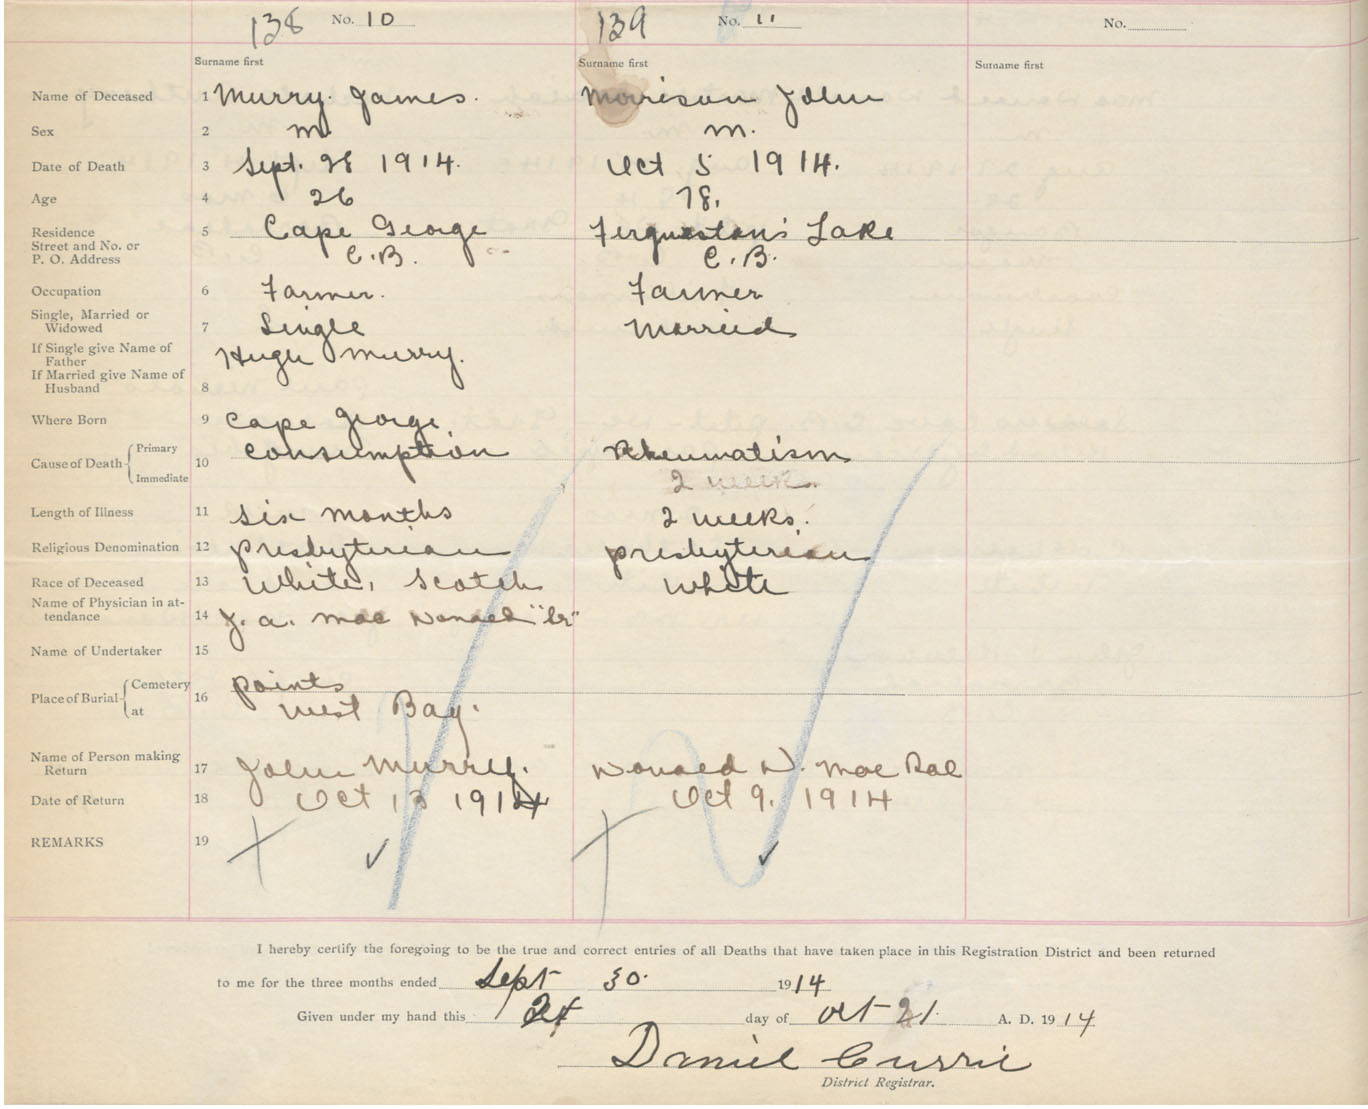 138 No. 10 139 No. 11 No.
Surname first Surname first Surname first
Name of Deceased 1 Murry. James. Morrison John
Sex 2 m. m.
Date of Death 3 Sept. 28 1914. Oct 5 1914.
Age 4 26 78.
Residence 5 Cape George Ferguson's Lake
Street and No. or
P. O. Address C.B. C.B.
Occupation 6 Farmer. Farmer
Single, Married or
Widowed 7 Single Married
If Single give Name of
Father Hugh Murry.
If Married give Name of
Husband 8
Where Born 9 Cape George
Cause of Death Primary 10 Consumption Rheumatism
Immediate 2 weeks.
Length of Illness 11 six months 2 weeks.
Religious Denomination 12 presbyterian presbyterian
Race of Deceased 13 White, Scotch White
Name of Physician in at-
tendance 14 J. A. Mac Donald "Dr"
Name of Undertaker 15
Place of Burial Cemetery 16 points
at West Bay.
Name of Person making
Return 17 John Murry. Donald D. Mac Rae
Date of Return 18 Oct 13 1914 Oct 9. 1914
REMARKS 19
I hereby certify the foregoing to be the true and correct entries of all Deaths that have taken place in this Registration District and been returned
to me for the three months ended Sept 30. 1914
Given under my hand this day of Oct 21. A. D. 1914
Daniel Currie
District Registrar.